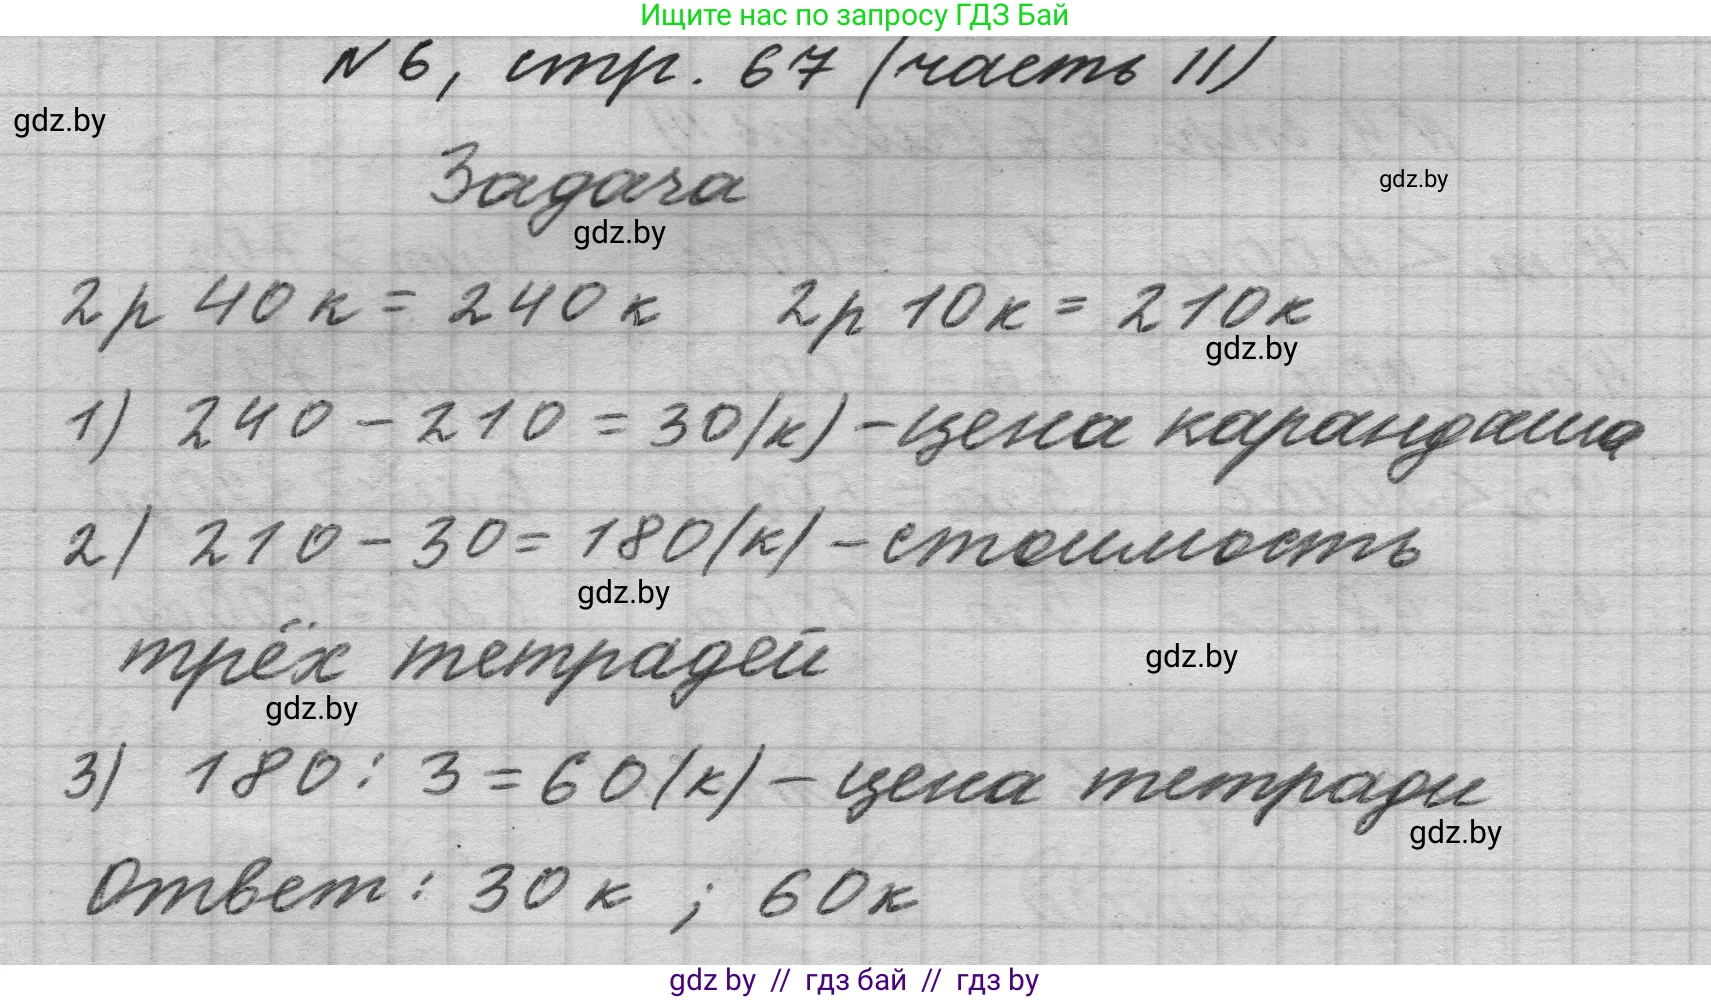 Ищите нас по запросу ГДЗ Бай
№ 6, стр. 67 (часть II)
gdz.by
Задача
gdz.by
gdz.by
2р 40 к = 240 к 2р 10к = 210к
gdz.by
1) 240 - 210 = 30(к) - цена карандаша
2) 210 - 30 = 180(к) - стоимость
gdz.by
трёх тетрадей
gdz.by
gdz.by
3) 180 : 3 = 60(к) - цена тетради
gdz.by
Ответ: 30 к ; 60к
gdz by // гдз бай // гдз by